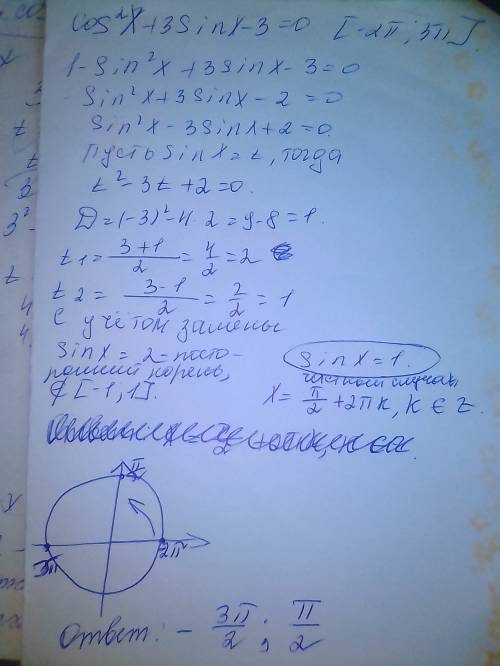 cos²x+3sinx-3=0 [-2π; 3π].
1-sin²x+3sinx-3=0
-sin²x+3sinx-2=0
sin²x-3sinx+2=0.
Пусть sinx=t, тогда
t²-3t+2=0.
D=(-3)²-4·2=9-8=1.
t1=(3+1)/2=4/2=2
t2=(3-1)/2=2/2=1
С учётом замены
sinx=2=посто-
ронний корень,
∉[-1;1].
sinx=1.
частный случай
x=π/2+2πk, k∈Z.
π/2
3π
2π
Ответ: -3π/2; π/2